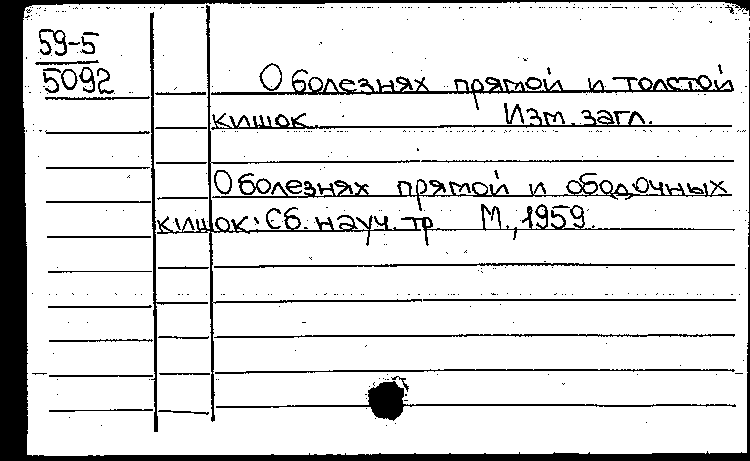 59-5
5092
О болезнях прямой и толстой
кишок. Изм. загл.
О болезнях прямой и ободочных
кишок: Сб. науч. тр. М., 1959.